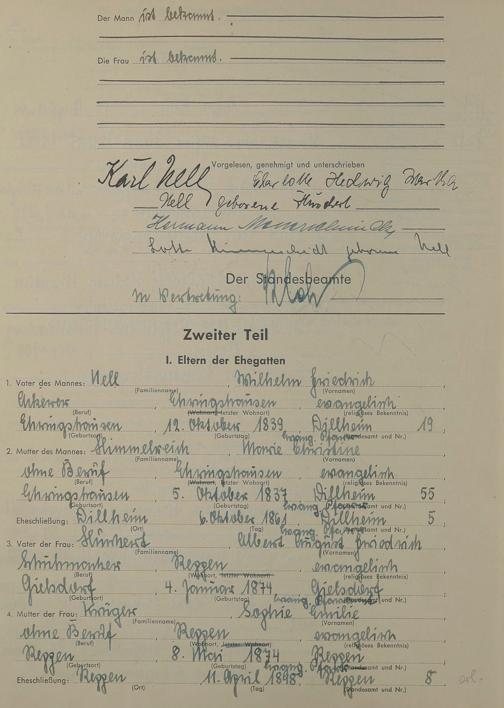 Der Mann ist bekannt.
Die Frau ist bekannt.
Vorgelesen, genehmigt und unterschrieben
Karl Nell Charlotte Hedwig Martha
Nell geborene
Hermann
Lotte geborene Nell
Der Standesbeamte
In Vertretung:
Zweiter Teil
I. Eltern der Ehegatten
1. Vater des Mannes: Nell Wilhelm Friedrich
(Familienname) (Vornamen)
Ackerer Ehringshausen evangelisch
(Beruf) (Wohnort, letzter Wohnort) (religiöses Bekenntnis)
Ehringshausen 12. Oktober 1839 Dillheim 19
(Geburtsort) (Geburtstag) (Standesamt und Nr.)
2. Mutter des Mannes: Himmelreich Marie Christine
(Familienname) (Vornamen)
ohne Beruf Ehringshausen evangelisch
(Beruf) (Wohnort, letzter Wohnort) (religiöses Bekenntnis)
Ehringshausen 5. Oktober 1837 Dillheim 55
(Geburtsort) (Geburtstag) (Standesamt und Nr.)
Eheschließung: Dillheim 6. Oktober 1861 Dillheim 5
(Ort) (Tag) (Standesamt und Nr.)
3. Vater der Frau: Albert August Friedrich
(Familienname) (Vornamen)
Schuhmacher Reppen evangelisch
(Beruf) (Wohnort, letzter Wohnort) (religiöses Bekenntnis)
4. Januar 1874
(Geburtsort) (Geburtstag) (Standesamt und Nr.)
4. Mutter der Frau: Krüger Sophie Emilie
(Familienname) (Vornamen)
ohne Beruf Reppen evangelisch
(Beruf) (Wohnort, letzter Wohnort) (religiöses Bekenntnis)
Reppen 8. Mai 1874 Reppen
(Geburtsort) (Geburtstag) (Standesamt und Nr.)
Eheschließung: Reppen 11. April 1898 Reppen 8
(Ort) (Tag) (Standesamt und Nr.)